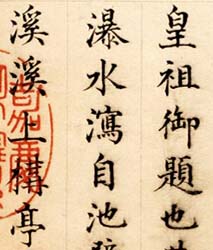 皇祖御題也
瀑水瀉自池
溪溪上構亭